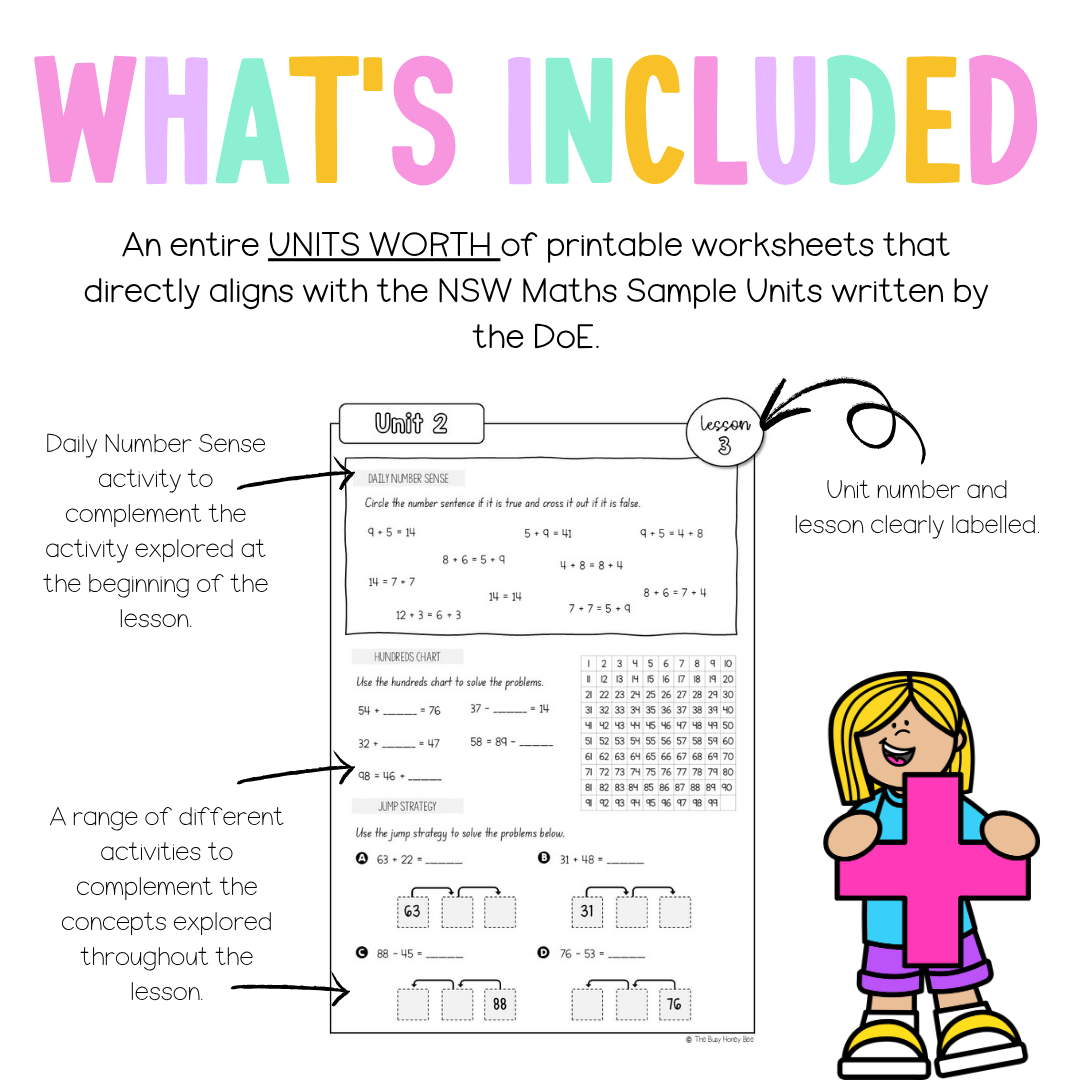 WHAT'S INCLUDED
An entire UNITS WORTH of printable worksheets that
directly aligns with the NSW Maths Sample Units written by
the DoE.
Daily Number Sense
activity to
complement the
activity explored at
the beginning of the
lesson.
Unit number and
lesson clearly labelled.
A range of different
activities to
complement the
concepts explored
throughout the
lesson.
Unit 2
Lesson
3
DAILY NUMBER SENSE
Circle the number sentence if it is true and cross it out if it is false.
9 + 5 = 14
5 + 9 = 41
9 + 5 = 4 + 8
8 + 6 = 5 + 9
4 + 8 = 8 + 4
14 = 7 + 7
14 = 14
8 + 6 = 7 + 4
12 + 3 = 6 + 3
7 + 7 = 5 + 9
HUNDREDS CHART
Use the hundreds chart to solve the problems.
54 + ______ = 76
37 - ______ = 14
32 + ______ = 47
58 = 89 - ______
98 = 46 + ______
1 2 3 4 5 6 7 8 9 10
11 12 13 14 15 16 17 18 19 20
21 22 23 24 25 26 27 28 29 30
31 32 33 34 35 36 37 38 39 40
41 42 43 44 45 46 47 48 49 50
51 52 53 54 55 56 57 58 59 60
61 62 63 64 65 66 67 68 69 70
71 72 73 74 75 76 77 78 79 80
81 82 83 84 85 86 87 88 89 90
91 92 93 94 95 96 97 98 99
JUMP STRATEGY
Use the jump strategy to solve the problems below.
A 63 + 22 = ______
B 31 + 48 = ______
63
31
C 88 - 45 = ______
D 76 - 53 = ______
88
76
© The Busy Honey Bee